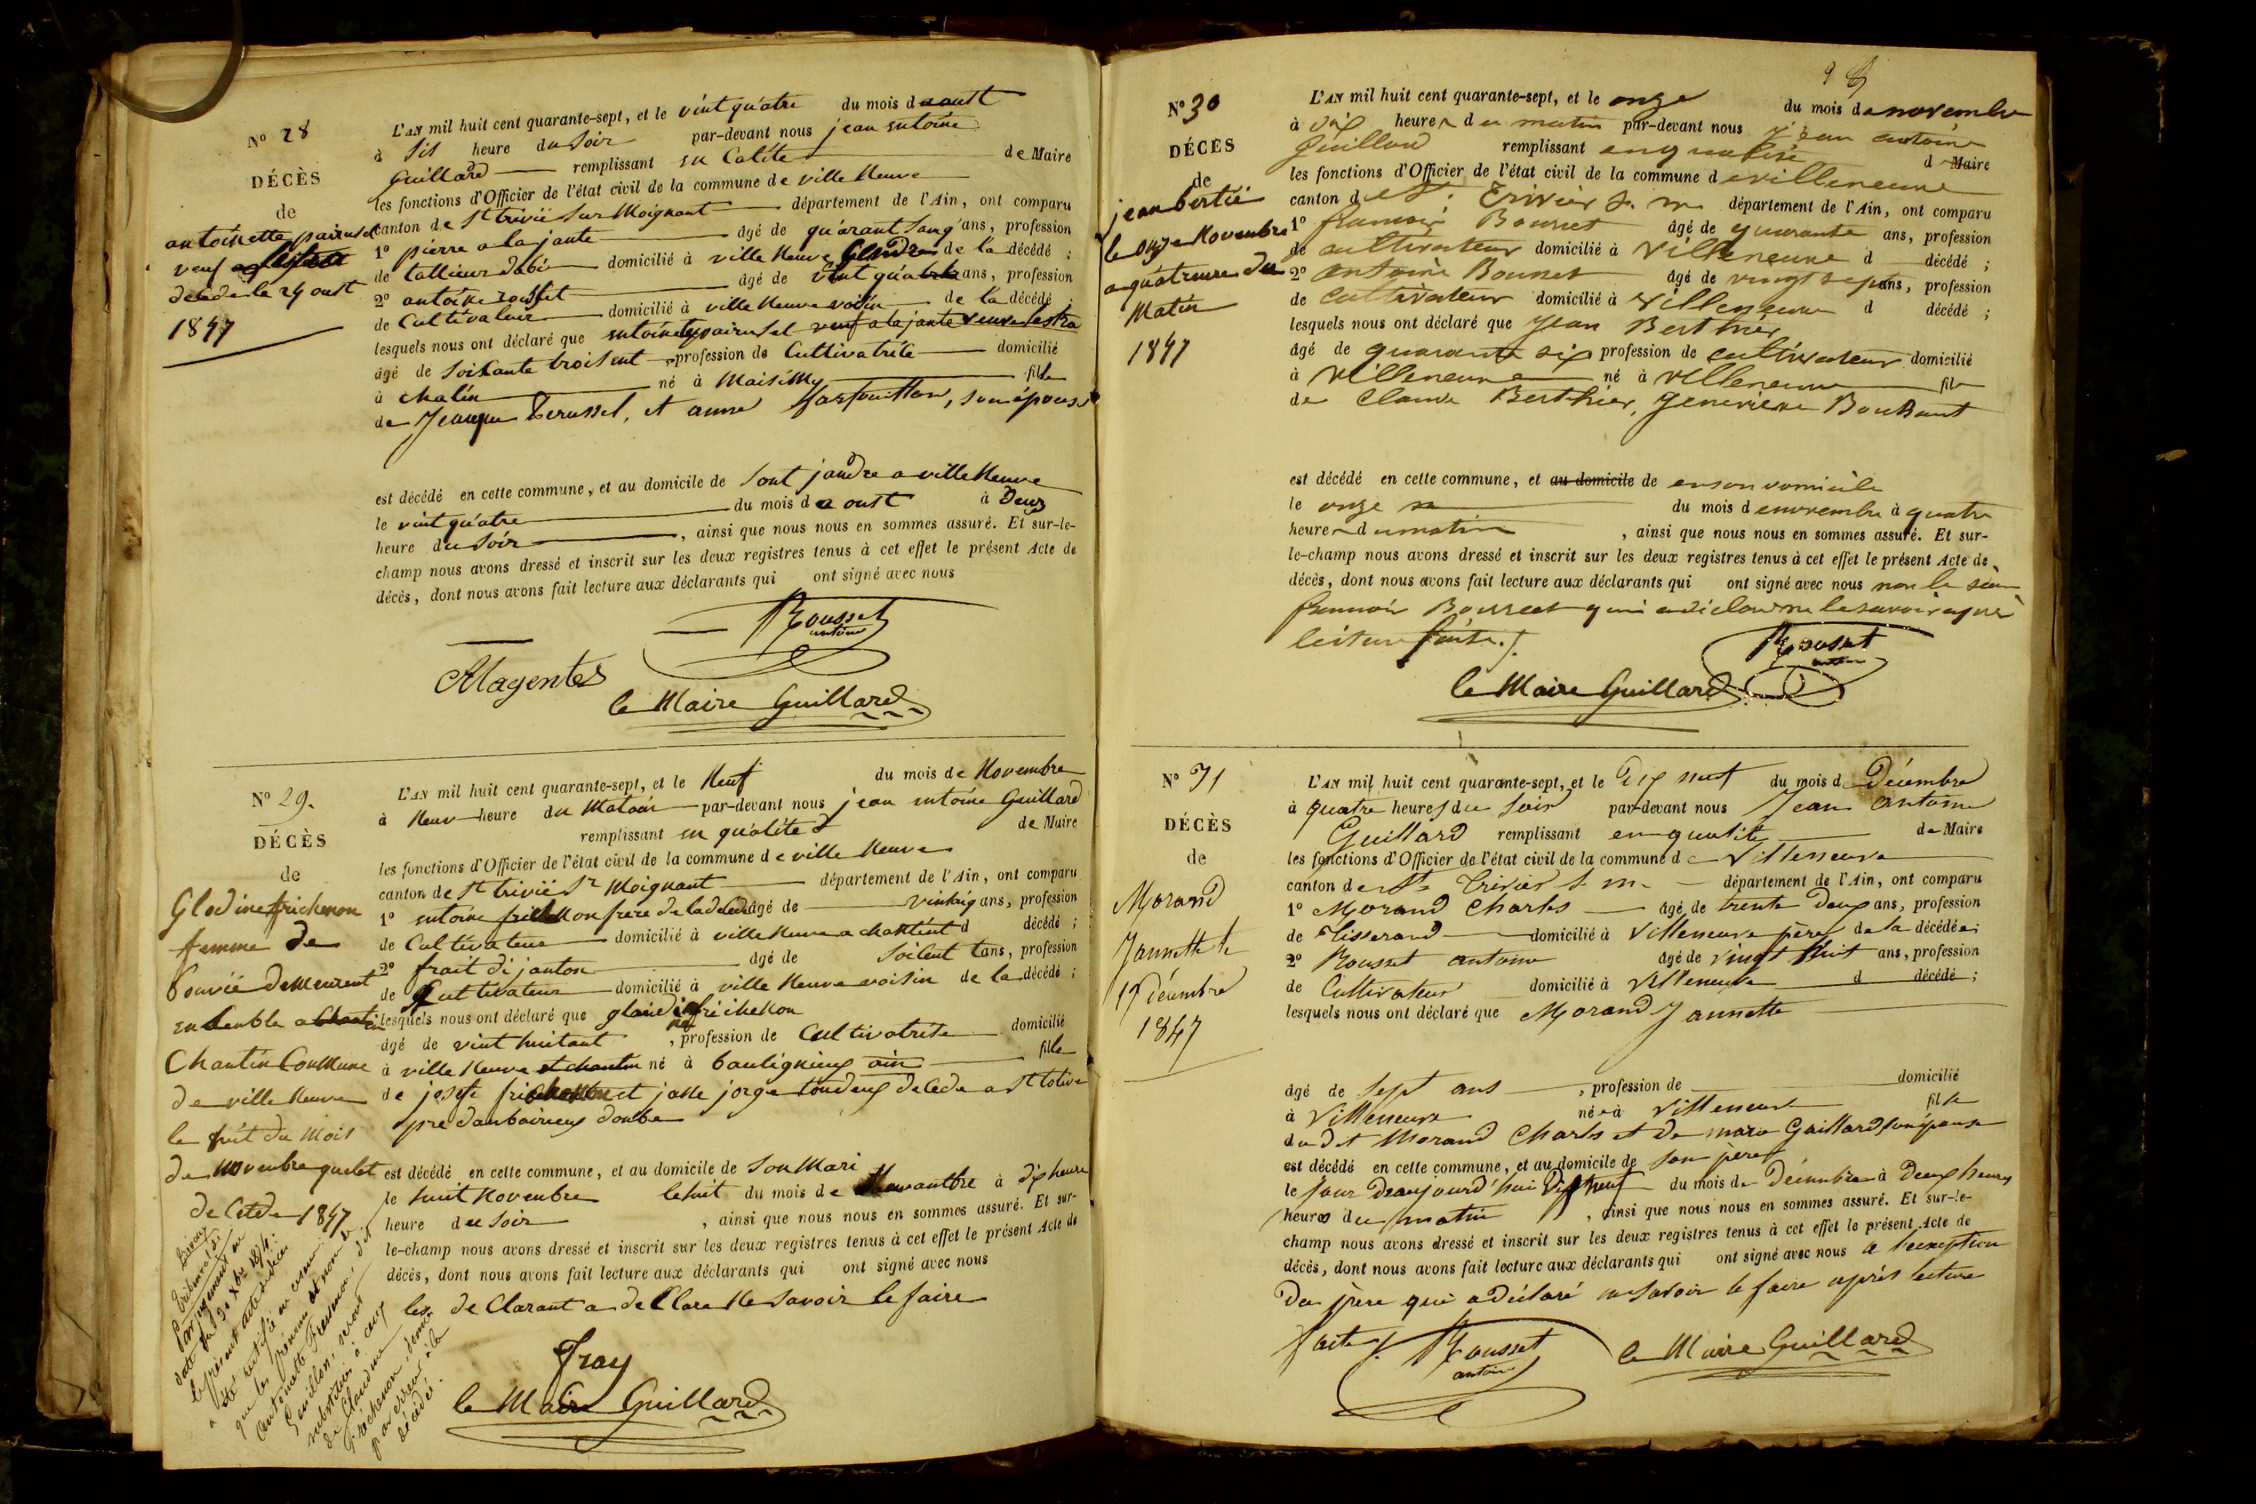 Nº 28
DÉCÈS
de
antoinette pairusel
veuf
décédé le 24 oust
1847
L'AN mil huit cent quarante-sept, et le vint quatre du mois d aoust
à sis heure du soir par-devant nous jean entoine
Guillard remplissant en Calite de Maire
les fonctions d'Officier de l'état civil de la commune de ville Neuve
canton de St trivié sur Moignant département de l'Ain, ont comparu
1º pierre alajante âgé de quarant sanq ans, profession
de tallieur dabi domicilié à ville Neuve Gendre de la décédé ;
2º antoine rousset âgé de vint quatre ans, profession
de Cultivateur domicilié à ville Neuve voisin de la décédé ;
lesquels nous ont déclaré que entoinette pairusel veuf alajante veuve lestra
âgé de soisante troisent profession de Cultivatrice domicilié
à chatin né à Maisimy fille
de Jacque Perussel, et anne son épouse
est décédé en cette commune, et au domicile de sont jandre a ville Neuve
le vint quatre du mois d e oust à Deux
heure du soir , ainsi que nous nous en sommes assuré. Et sur-le-
champ nous avons dressé et inscrit sur les deux registres tenus à cet effet le présent Acte de
décès, dont nous avons fait lecture aux déclarants qui ont signé avec nous
Rousset
antoine
le Maire Guillard
Nº 29.
DÉCÈS
de
Glodine frichenon
femme de
bouvié demeurent
ensemble a
Chantin Commune
de ville Neuve
le huit du Mois
de Novembre quelet
decede 1847
L'AN mil huit cent quarante-sept, et le Neuf du mois de Novembre
à Neuv heure du Matain par-devant nous jean entoine Guillard
remplissant en qualité d de Maire
les fonctions d'Officier de l'état civil de la commune de ville Neuve
canton de St trivié Sr Moignant département de l'Ain, ont comparu
1º entoine frichenon frere de la decede âgé de vintsig ans, profession
de Cultivateur domicilié à ville Neuve a chantint d décédé ;
2º frait di janton âgé de soisent t ans, profession
de Cultivateur domicilié à ville Neuve voisin de la décédé ;
lesquels nous ont déclaré que glaudi frichenon
âgé de vint huitant , profession de Cultivatrise domicilié
à ville Neuve et chantin né à bauligneux ain fille
de josefe frichenon et janne jorge toudeux decede a St tolive
pre
est décédé en cette commune, et au domicile de son Mari
le huit Novembre le huit du mois de Novanbre à dix heure
heure du soir , ainsi que nous nous en sommes assuré. Et sur-
le-champ nous avons dressé et inscrit sur les deux registres tenus à cet effet le présent Acte de
décès, dont nous avons fait lecture aux déclarants qui ont signé avec nous
les de Clarant a de Clare Ne savoir le faire
Fray
le Maire Guillard
Par jugement du
tribunal de
Trévoux en
date du 30 Xbre 1874.
le présent acte de décès
a été rectifié en ce sens
que les prénoms et nom de
Antoinette Frichenon, dit
Guillon, seront
substitués à ceux
de Claudine
Frichenon, donnés
par erreur à la
décédée.
Nº 30
DÉCÈS
de
jean bertié
le onze Novembre
a quatreure du
Matin
1847
L'AN mil huit cent quarante-sept, et le onze du mois de novembre
à six heures du matin par-devant nous jean antoine
Guillard remplissant en qualité d Maire
les fonctions d'Officier de l'état civil de la commune de villeneuve
canton de St. Trivier s. m. département de l'Ain, ont comparu
1º francois Bourcet âgé de quarante ans, profession
de cultivateur domicilié à Villeneuve d décédé ;
2º antoine Rousset âgé de vingt sept ans, profession
de cultivateur domicilié à Villeneuve d décédé ;
lesquels nous ont déclaré que Jean Berthier
âgé de quarante six profession de cultivateur domicilié
à Villeneuve né à Villeneuve fils
de Claude Berthier, Genevieve
est décédé en cette commune, et au domicile de en son domicile
le onze du mois de novembre à quatre
heures du matin , ainsi que nous nous en sommes assuré. Et sur-
le-champ nous avons dressé et inscrit sur les deux registres tenus à cet effet le présent Acte de
décès, dont nous avons fait lecture aux déclarants qui ont signé avec nous non le sieur
francois Bourcet qui a déclaré ne le savoir après
lecture faite.
Rousset
antoine
le Maire Guillard
Nº 31
DÉCÈS
de
Morand
Jannette le
19 Décembre
1847
L'AN mil huit cent quarante-sept, et le Dix neuf du mois de Décembre
à quatre heures du soir par-devant nous Jean antoine
Guillard remplissant en qualité de Maire
les fonctions d'Officier de l'état civil de la commune de Villeneuve
canton de St Trivier s. m. département de l'Ain, ont comparu
1º Morand Charles âgé de trente Deux ans, profession
de Tisserand domicilié à Villeneuve père de la décédée ;
2º Rousset antoine âgé de vingt huit ans, profession
de Cultivateur domicilié à Villeneuve d décédé ;
lesquels nous ont déclaré que Morand Jannette
âgé de sept ans , profession de domicilié
à Villeneuve née à Villeneuve fille
dudit Morand Charles et de marie Gaillard son épouse
est décédé en cette commune, et au domicile de son père
le jour d'aujourd'hui Dix neuf du mois de Décembre à Deux heures
heures du matin , ainsi que nous nous en sommes assuré. Et sur-le-
champ nous avons dressé et inscrit sur les deux registres tenus à cet effet le présent Acte de
décès, dont nous avons fait lecture aux déclarants qui ont signé avec nous a l'exception
Du père qui a déclaré ne savoir le faire après lecture
faite.
Rousset
antoine
le Maire Guillard